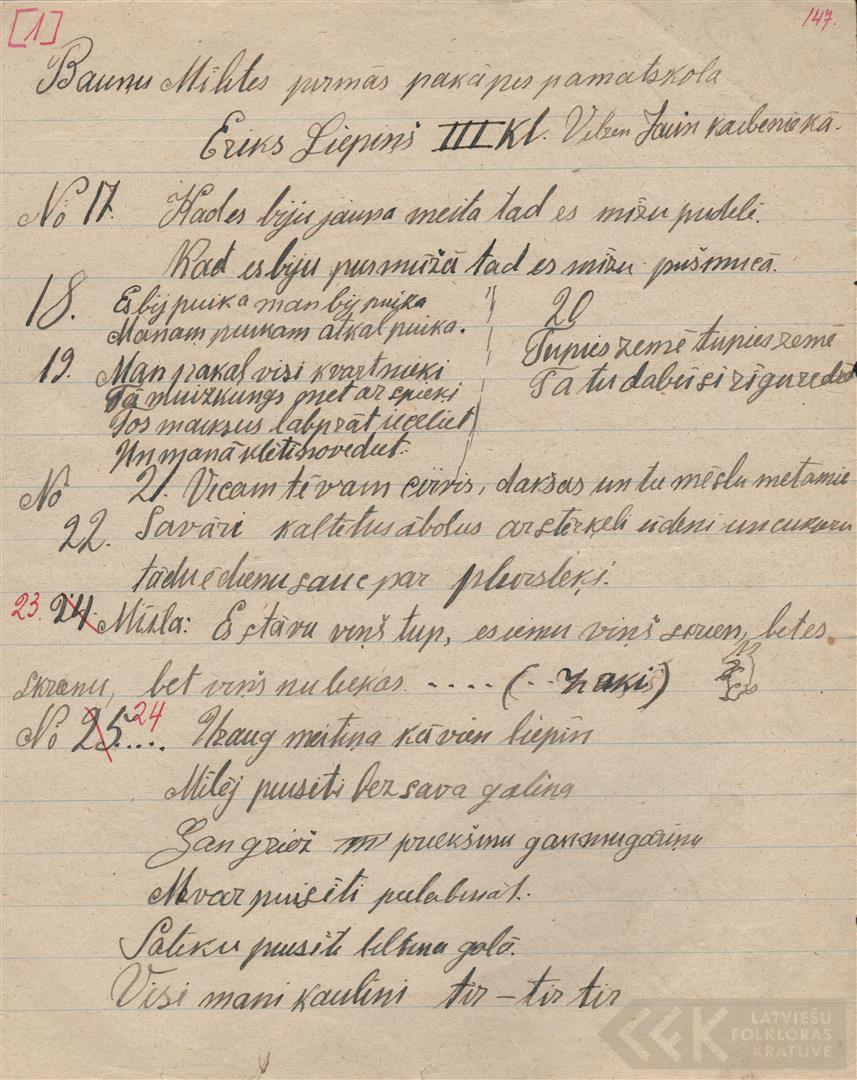 [1]
147.
Baunu Mihtes pirmās pakāpes pamatskola
Eriks Liepiņš III Kl. Jaun
No 17. Kad es biju jauna meita tad es mižu pudelē.
Kad es biju purmužā tad es mižu
18. Es bij puika man bij puika
Manam puikam atkal puika.
19. Man pakaļ visi kvartnieki
Tā muizkungs met ar spieķi
Tos maisus labprāt ieceliet
Un manā klētī novediet.
20
Tupies zemē tupies zemē
Tā tu dabūsi
No 21. Vecam tēvam cirvis, dakšas un tu mēslu metamie
22. Savāri kaltētus ābolus ar stērķeli ūdeni un cukuru
tādu ēdienu sauc par
23. 24. Mīkla: Es stāvu viņš tup, es iemu viņš skrien, bet es
skrienu, bet viņš nu liekas .... (.. zaķis)
No 25 24 .... Uzaug meitiņa kā vien liepiņ
Mīlēj puisīti bez sava galiņa
Gan griež priekšiņu gan mugariņu
Nevar puisīti pielabināt.
Satieku puisīti tiltiņa galā.
Visi mani kauliņi tir - tir tir
LATVIEŠU
FOLKLORAS
KRATUVE